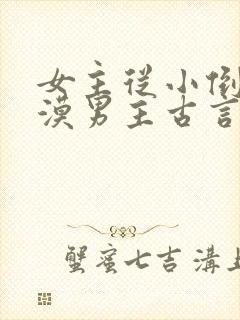 女主从小倒
漠男主古言
蟹蜜七吉沟上